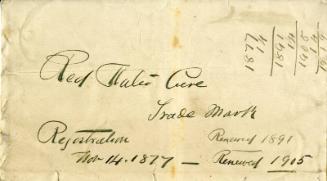 Red Water Cure
Trade Mark
Registration Renewed 1891
Nov. 14. 1877 — Renewed 1905
1877
14
1891
14
1905
14